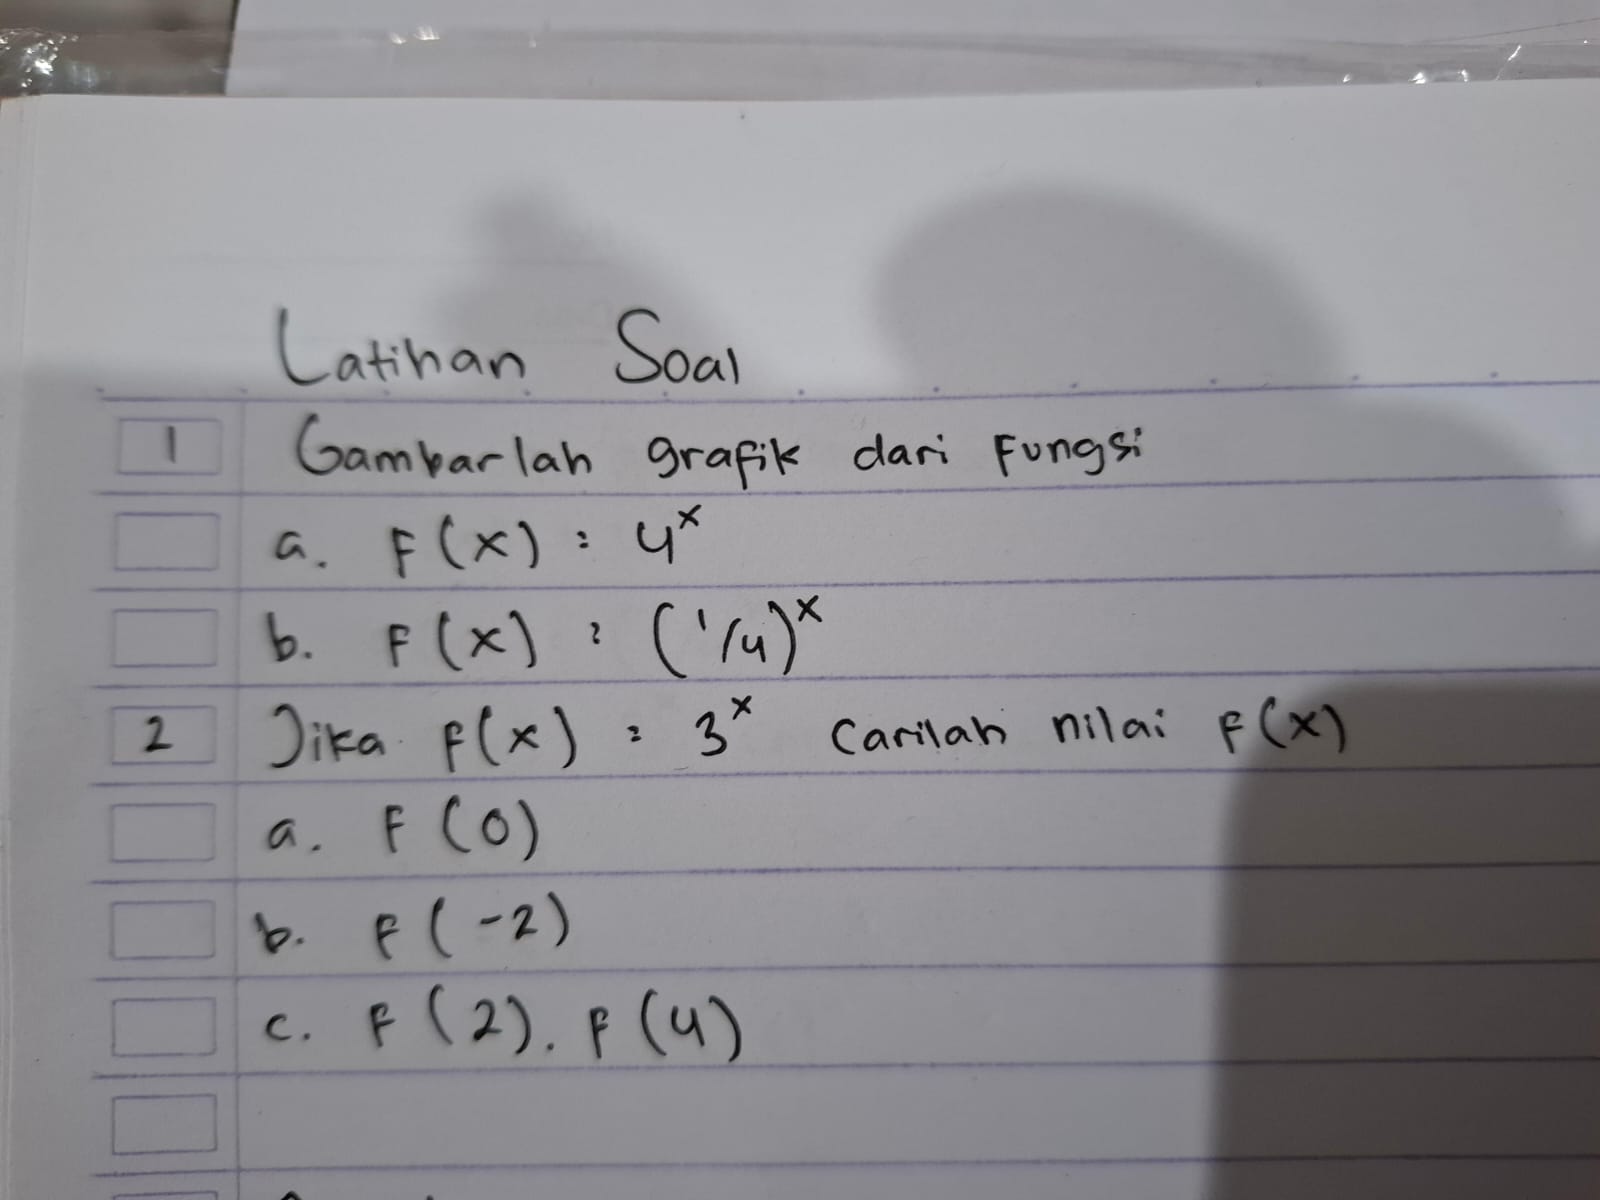 Latihan Soal
1 Gambarlah grafik dari Fungsi
a. F(x) = 4^x
b. F(x) = (1/4)^x
2 Jika F(x) = 3^x Carilah nilai F(x)
a. F(0)
b. F(-2)
c. F(2). F(4)